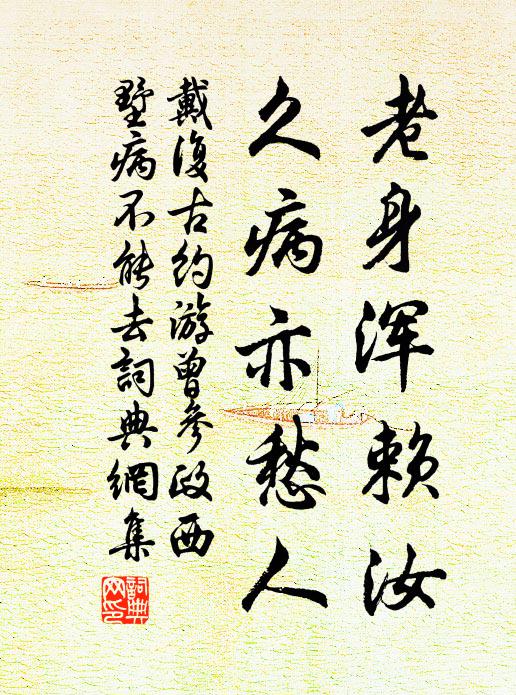 老身浑赖汝
久病亦愁人
戴復古约游曾参政西
墅病不能去詞典網集
詞典
网印